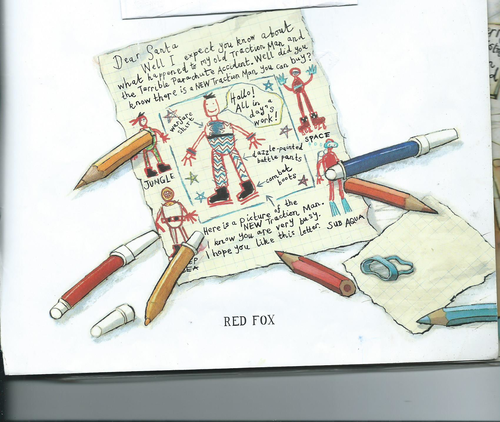 Dear Santa
Well I expect you know about
what happened to my old Traction Man and
the Terrible Parachute Accident. Well did you
know there is a NEW Traction Man you can buy?
Hallo!
All in
a day's
work!
warfare
shirt
SPACE
dazzle-painted
battle pants
JUNGLE
combat
boots
Here is a picture of the
NEW Traction Man.
I know you are very busy.
I hope you like this letter.
SUB AQUA
SEA
RED FOX